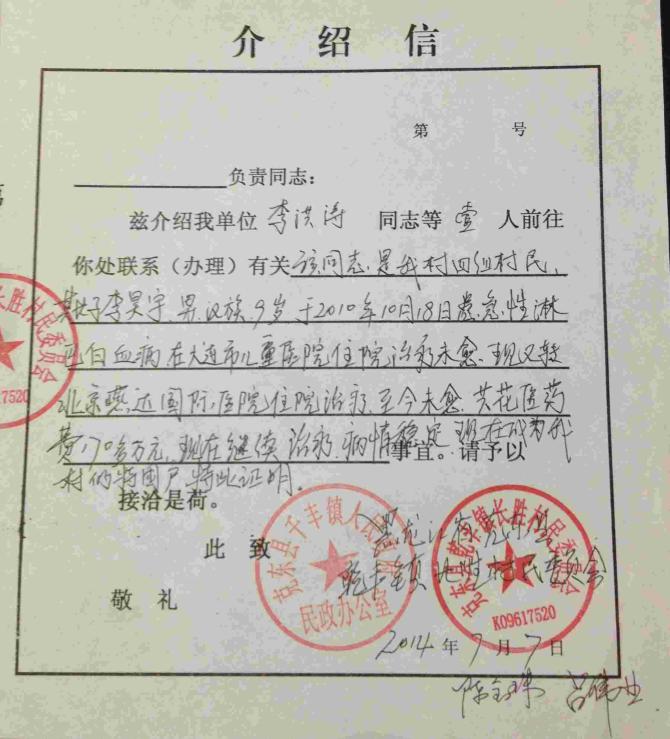 介绍信
第 号
负责同志：
兹介绍我单位 李洪涛 同志等 壹 人前往
你处联系（办理）有关 该同志是我村四组村民，
其子李昊宇 男 汉族 9岁 于2010年10月18日患急性淋
巴白血病 在大连市儿童医院住院治疗未愈 现又转
北京燕达国际医院住院治疗 至今未愈 共花医药
费170多万元 现在继续治疗 病情稳定 现在成为我
事宜。请予以
村的特困户 特此证明。
接洽是荷。
此致
黑龙江省克东县
乾丰镇长胜村民委员会
敬礼
2014年7月7日
克东县千丰镇人民政府
民政办公室
克东县乾丰镇长胜村民委员会
K09617520
长胜村民委员会
17520